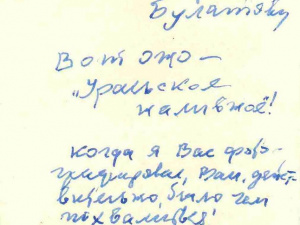 Булатову
Вот оно —
„Уральское
наливное"!
когда я Вас фото-
графировал, Вам, дейст-
вительно, было чем
похвалиться!